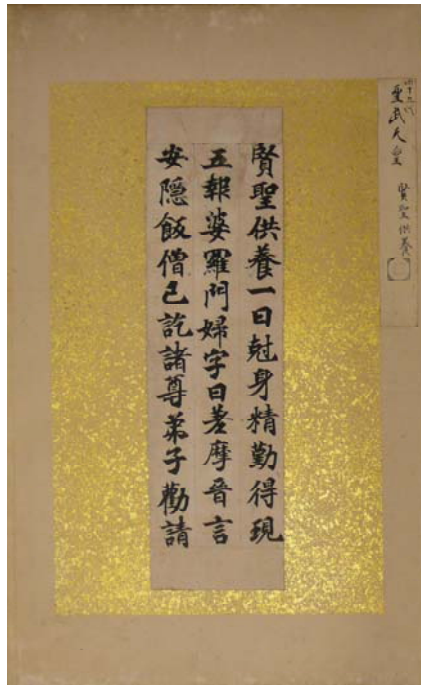 四十五代
聖武天皇 賢聖供養
賢聖供養一日尅身精勤得現
五報婆羅門婦字曰差摩晉言
安隱飯僧已訖諸尊弟子勸請